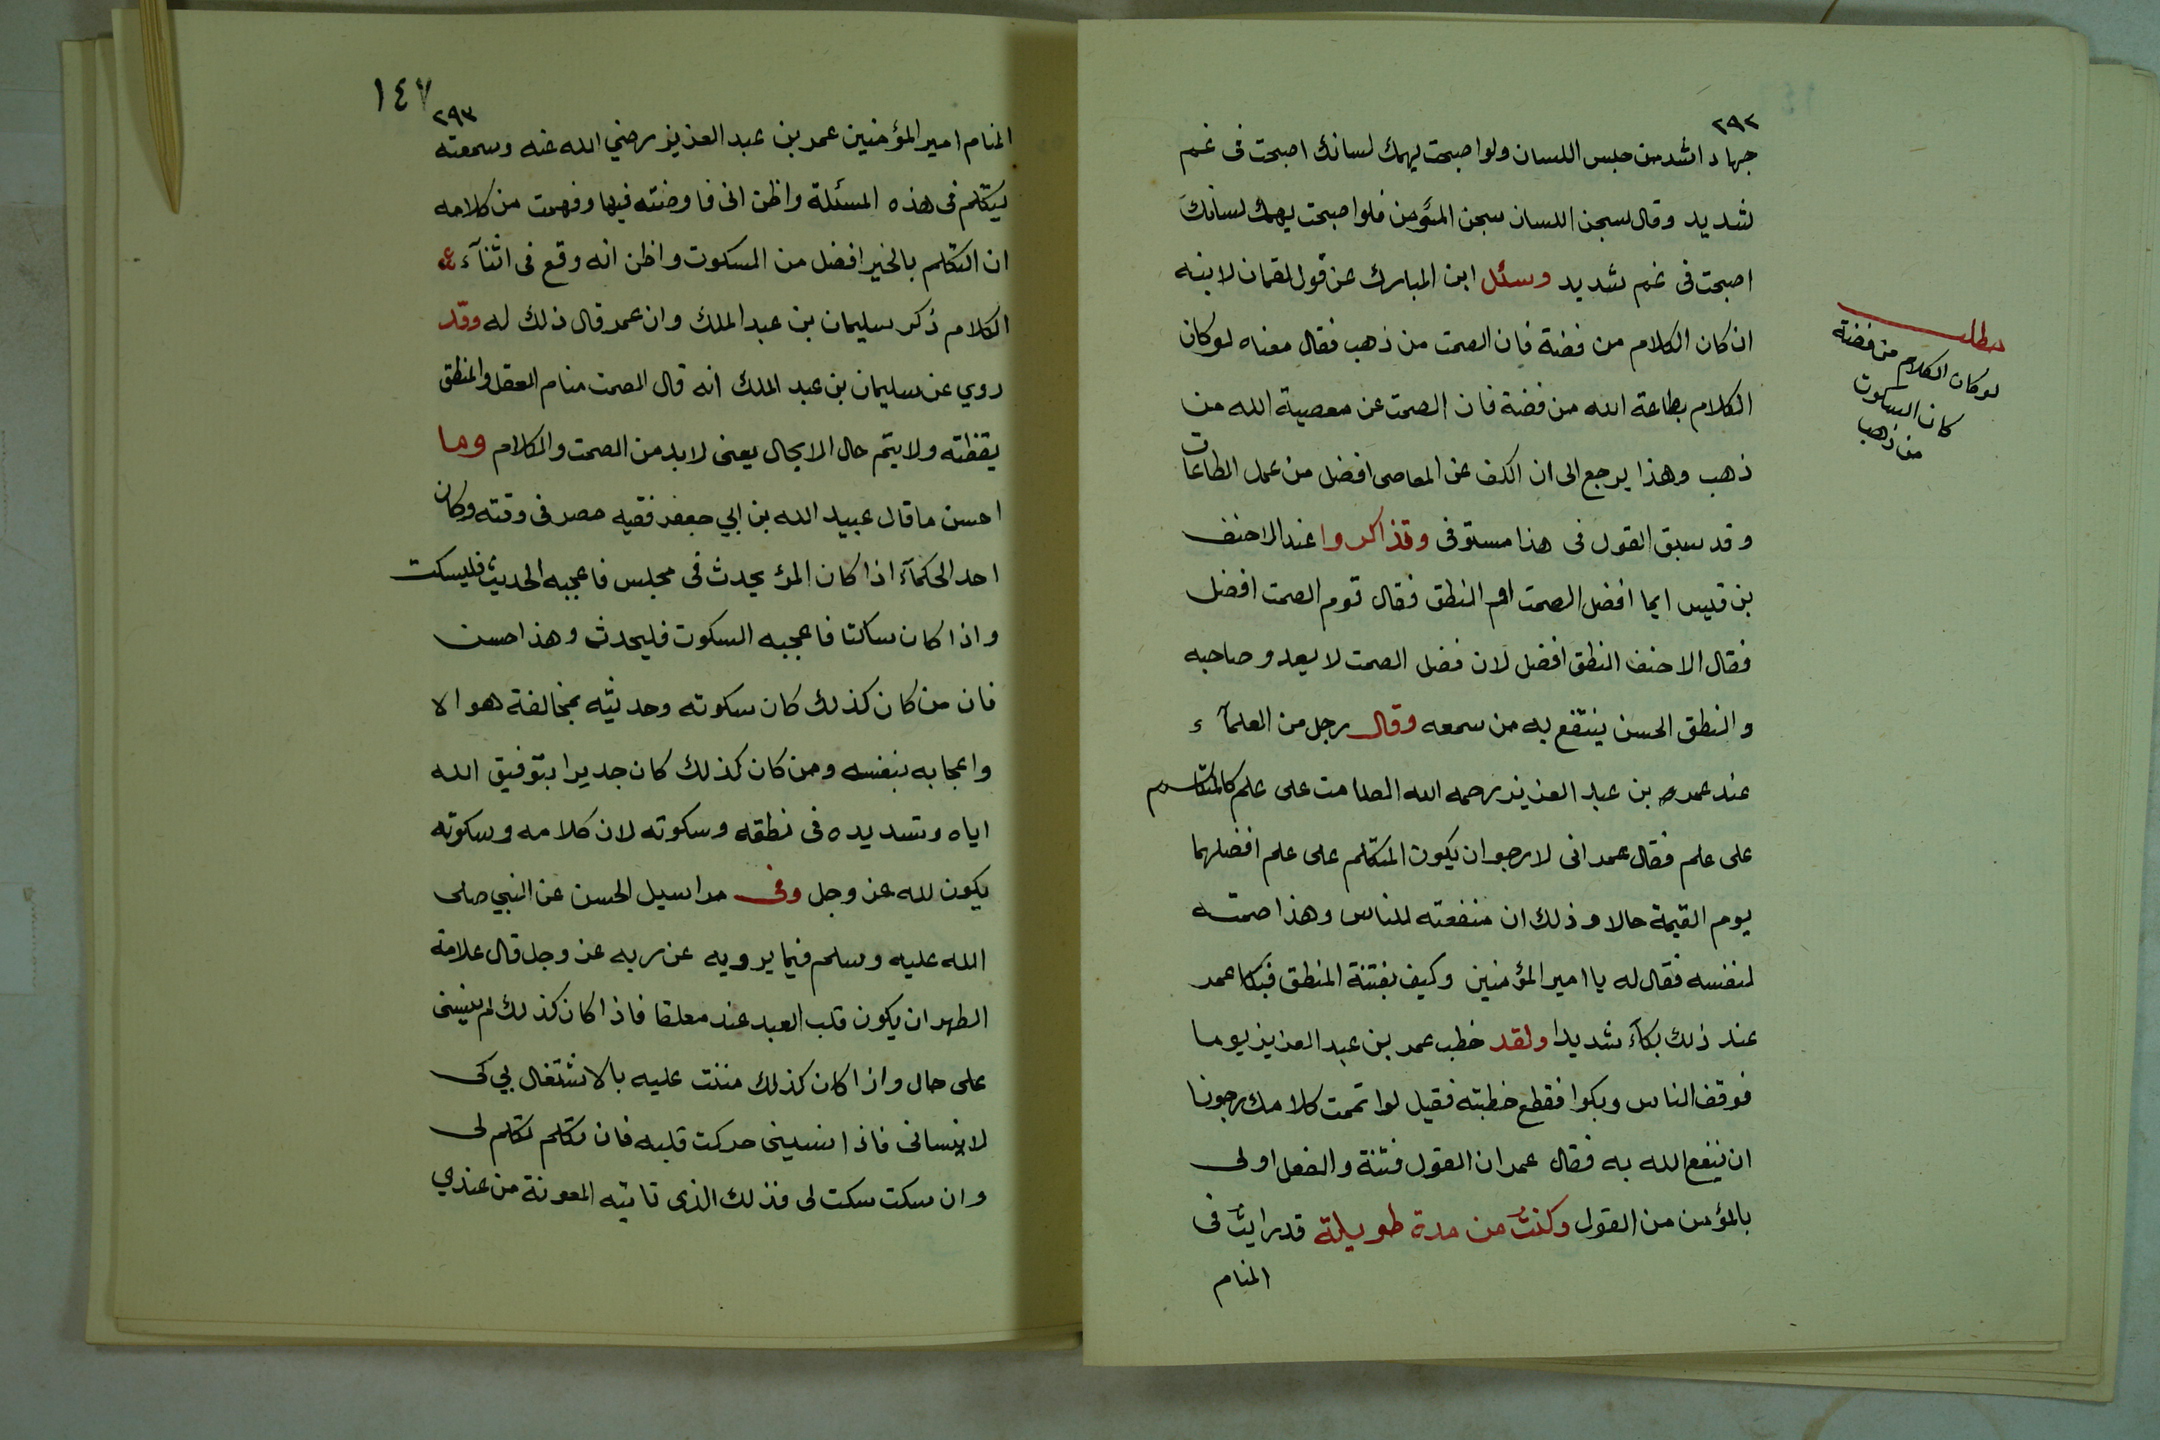 ٢٩٢
جهاد اشد من حبس اللسان ولو اصبحت يهمك لسانك اصبحت فى غم
شديد وقال سجن اللسان سجن المئومن فلو اصبحت يهمك لسانك
اصبحت فى غم شديد وسئل ابن المبارك عن قول لقمان لابنه
ان كان الكلام من فضة فان الصمت من ذهب فقال معناه لو كان
الكلام بطاعة الله من فضة فان الصمت عن معصية الله من
ذهب وهذا يرجع الى ان الكف عن المعاصى افضل من عمل الطاعات
وقد سبق القول فى هذا مستوفى وتذاكروا عند الاحنف
بن قيس ايما افضل الصمت ام النطق فقال قوم الصمت افضل
فقال الاحنف النطق افضل لان فضل الصمت لا يعدو صاحبه
والنطق الحسن ينتفع به من سمعه وقال رجل من العلمآء
عند عمر بن عبد العزيز رحمه الله الصامت على علم كالمتكلم
على علم فقال عمر انى لارجو ان يكون المتكلم على علم افضلهما
يوم القيمة حالا وذلك ان منفعته للناس وهذا صمته
لنفسه فقال له يا امير المؤمنين وكيف بفتنة المنطق فبكا عمر
عند ذلك بكآء شديدا ولقد خطب عمر بن عبد العزيز يوما
فوقف الناس وبكوا فقطع خطبته فقيل لو اتممت كلامك رجونا
ان ينفع الله به فقال عمر ان القول فتنة والفعل اولى
بالمؤمن من القول وكنتُ من مدة طويلة قد رايتُ فى
المنام
مطلب
لو كان الكلام من فضة
كان السكوت
من ذهب
١٤٧
٢٩٣
المنام امير المؤمنين عمر بن عبد العزيز رضي الله عنه وسمعته
يتكلم فى هذه المسئلة واظن انى فاوضته فيها وفهمت من كلامه
ان التكلم بالخير افضل من السكوت واظن انه وقع فى اثنآء
الكلام ذكر سليمان بن عبد الملك وان عمر قال ذلك له وقد
روي عن سليمان بن عبد الملك انه قال الصمت منام العقل والمنطق
يقظته ولا يتم حال الا بحال يعنى لابد من الصمت والكلام وما
احسن ما قال عبيد الله بن ابي جعفر فقيه مصر فى وقته وكان
احد الحكمآء اذا كان المرء يحدث فى مجلس فاعجبه الحديث فليسكت
واذا كان ساكتا فاعجبه السكوت فليحدث وهذا حسن
فان من كان كذلك كان سكوته وحديثه بمخالفة هواه
واعجابه بنفسه ومن كان كذلك كان جديرا بتوفيق الله
اياه وتسديده فى نطقه وسكوته لان كلامه وسكوته
يكون لله عز وجل وفى مراسيل الحسن عن النبي صلى
الله عليه وسلم فيما يرويه عن ربه عز وجل قال علامة
الطهر ان يكون قلب العبد عند معلقا فاذا كان كذلك لم ينسنى
على حال واذا كان كذلك مننت عليه بالاشتغال بي كى
لا ينسانى فاذا انسينى حركت قلبه فان تكلم تكلم لى
وان سكت سكت لى فذلك الذى تاتيه المعونة من عندي